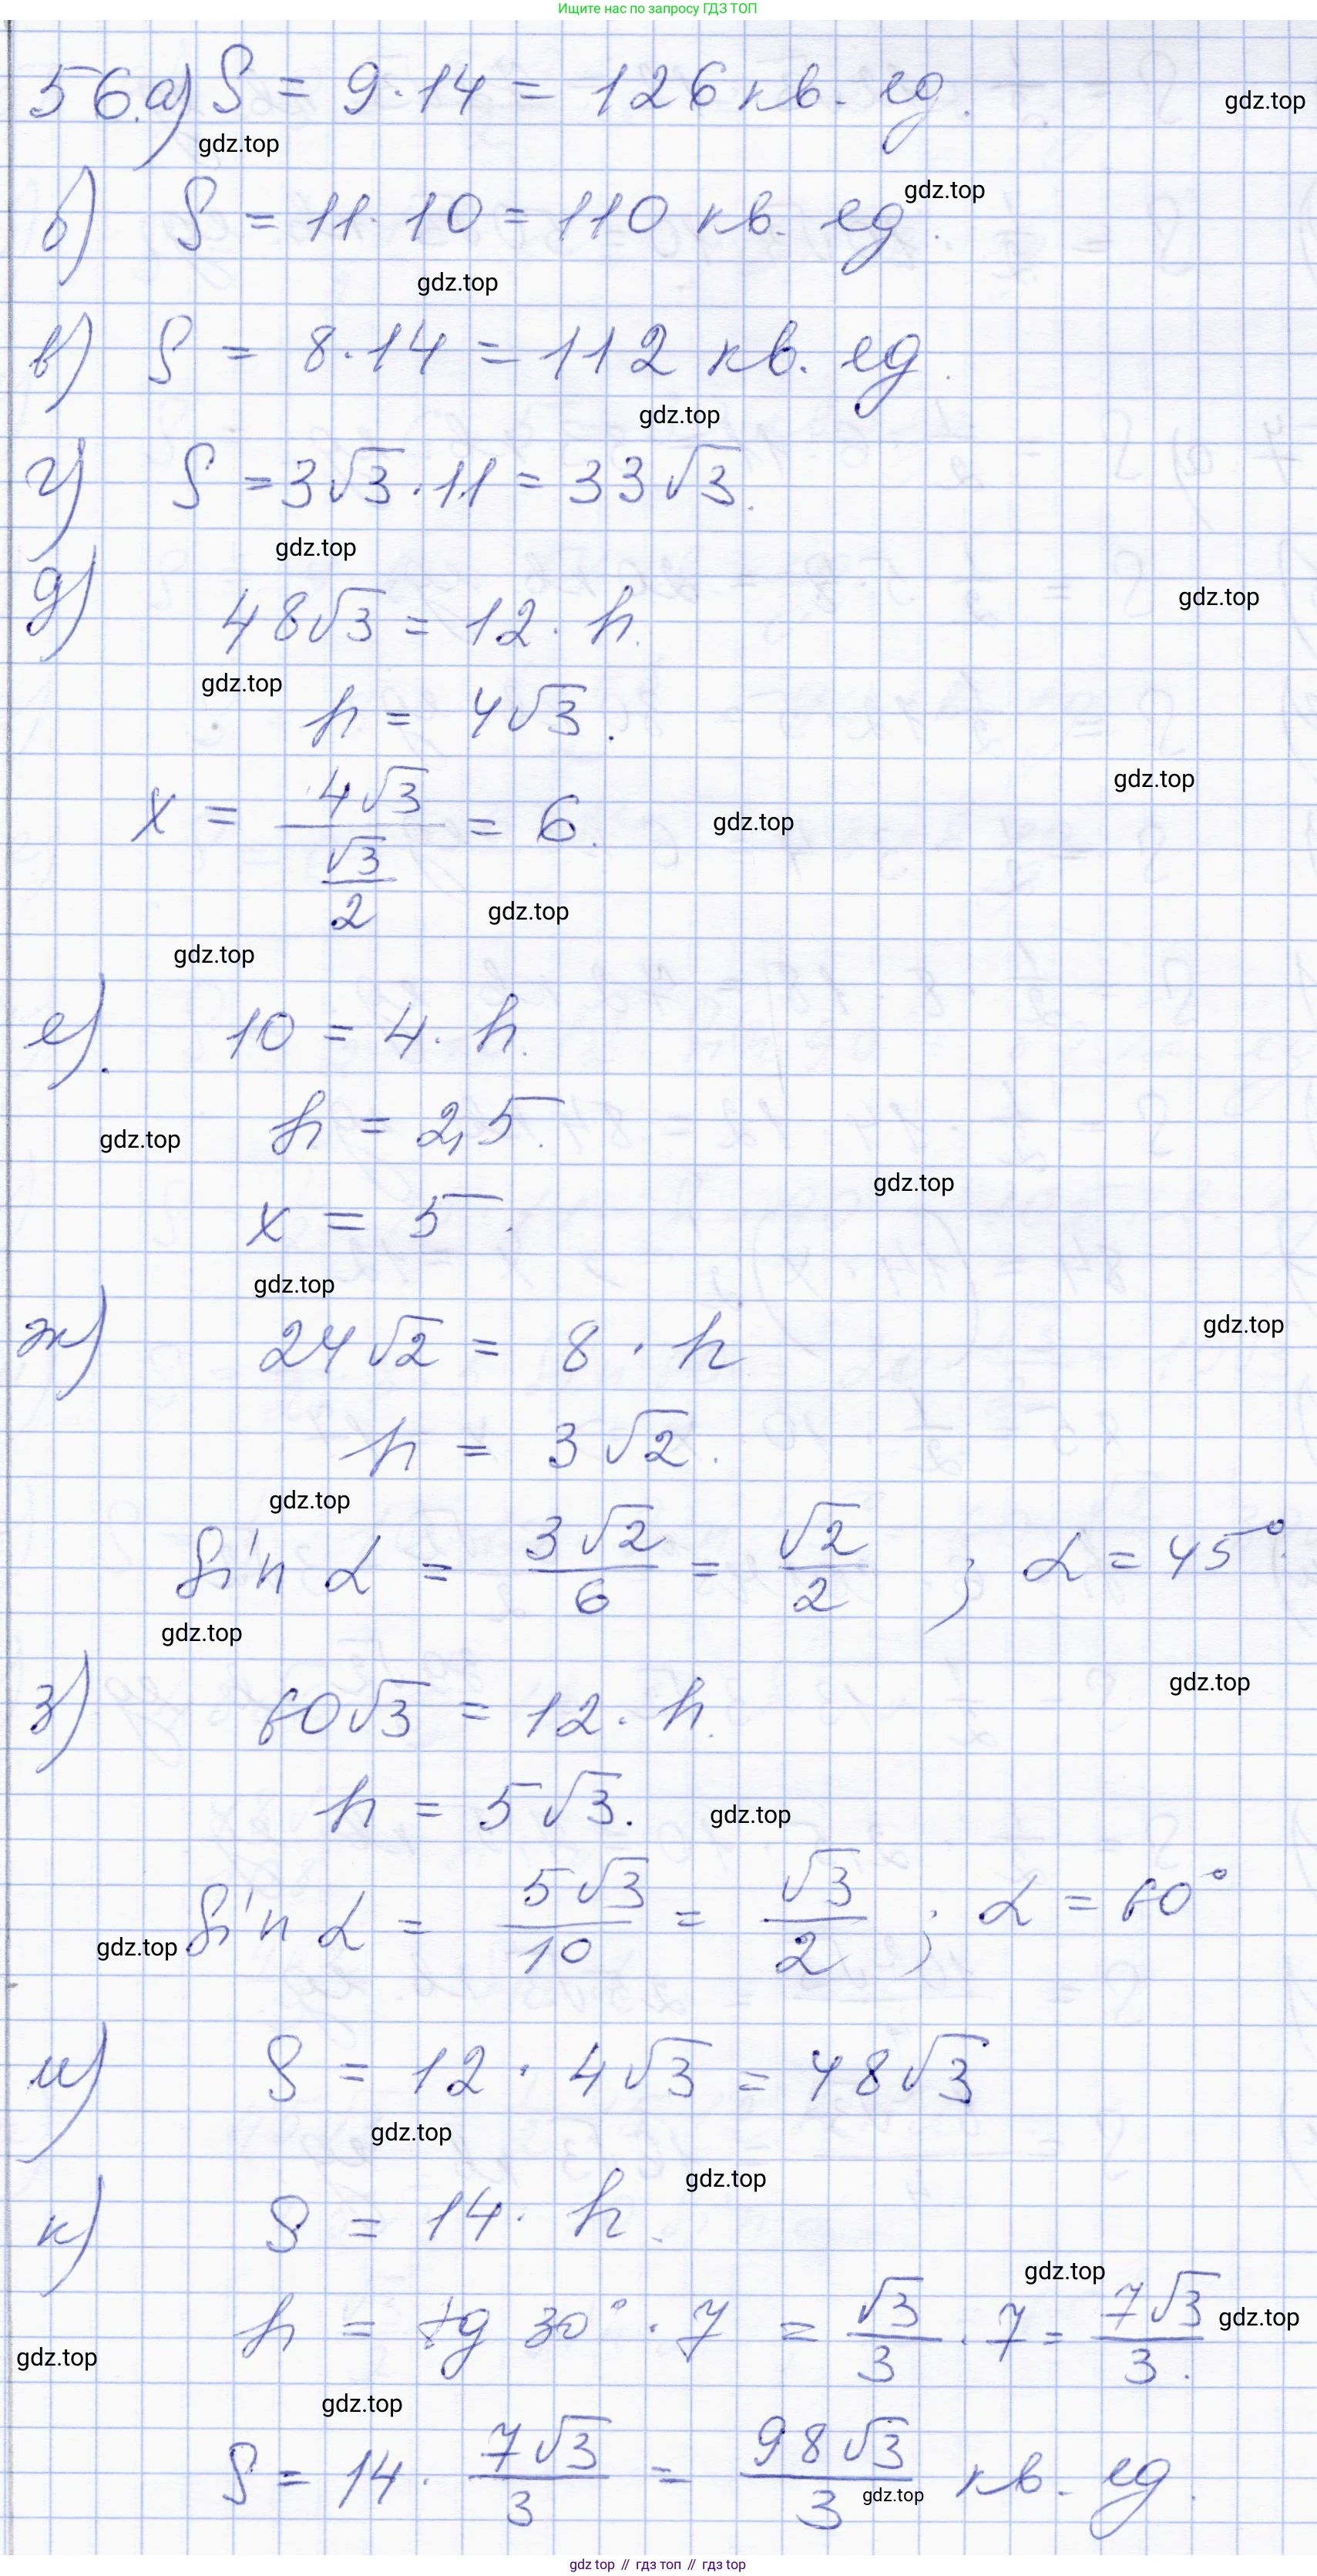 Ищите нас по запросу ГДЗ ТОП
56.а) S = 9·14 = 126 кв. ед.
gdz.top
gdz.top
gdz.top
б) S = 11·10 = 110 кв. ед.
gdz.top
в) S = 8·14 = 112 кв. ед.
gdz.top
г) S = 3√3·11 = 33√3.
gdz.top
д) 48√3 = 12·h.
gdz.top
gdz.top
h = 4√3.
gdz.top
x = 4√3 / (√3/2) = 6.
gdz.top
gdz.top
gdz.top
е). 10 = 4·h.
h = 2,5.
gdz.top
gdz.top
x = 5.
gdz.top
ж) 24√2 = 8·h
gdz.top
h = 3√2.
gdz.top
sin α = 3√2/6 = √2/2 ; α = 45°.
gdz.top
з) 60√3 = 12·h.
gdz.top
h = 5√3.
gdz.top
sin α = 5√3/10 = √3/2 ; α = 60°
gdz.top
и) S = 12·4√3 = 48√3
gdz.top
gdz.top
к) S = 14·h.
gdz.top
h = tg 30°·7 = √3/3·7 = 7√3/3.
gdz.top
gdz.top
gdz.top
S = 14·7√3/3 = 98√3/3 кв. ед.
gdz.top
gdz top // гдз топ // гдз top